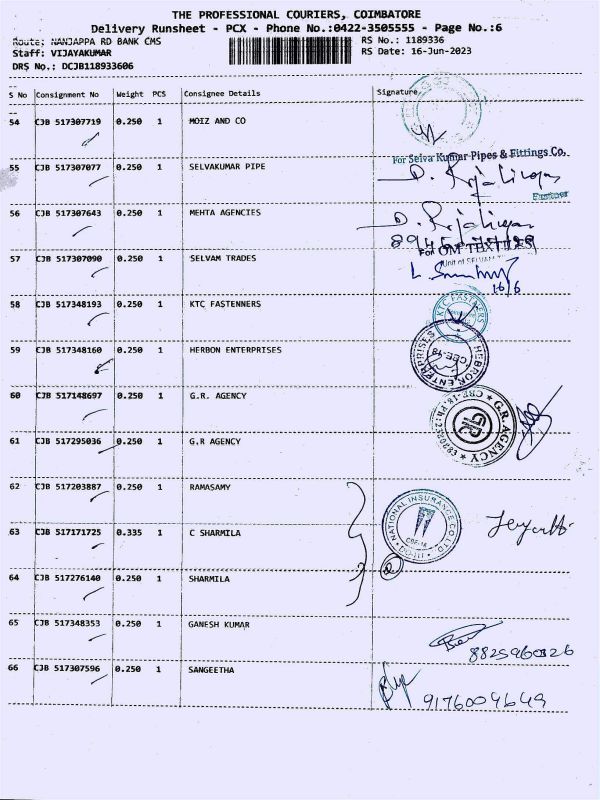 THE PROFESSIONAL COURIERS, COIMBATORE
Delivery Runsheet - PCX - Phone No.:0422-3505555 - Page No.:6
Route: NANJAPPA RD BANK CMS
RS No.: 1189336
Staff: VIJAYAKUMAR
RS Date: 16-Jun-2023
DRS No.: DCJB118933606
S No Consignment No Weight PCS Consignee Details Signature
54 CJB 517307719 0.250 1 MOIZ AND CO
For Selva Kumar Pipes & Fittings Co.
55 CJB 517307077 0.250 1 SELVAKUMAR PIPE
56 CJB 517307643 0.250 1 MEHTA AGENCIES
For OM TEXTILES
57 CJB 517307090 0.250 1 SELVAM TRADES
16/6
58 CJB 517348193 0.250 1 KTC FASTENNERS
KTC FASTNERS
59 CJB 517348160 0.250 1 HERBON ENTERPRISES
HEBRON ENTERPRISES
CBE-18
60 CJB 517148697 0.250 1 G.R. AGENCY
G.R. AGENCY
61 CJB 517295036 0.250 1 G.R AGENCY
62 CJB 517203887 0.250 1 RAMASAMY
NATIONAL INSURANCE CO LTD
63 CJB 517171725 0.335 1 C SHARMILA
64 CJB 517276140 0.250 1 SHARMILA
65 CJB 517348353 0.250 1 GANESH KUMAR
8825960326
66 CJB 517307596 0.250 1 SANGEETHA
9176004649